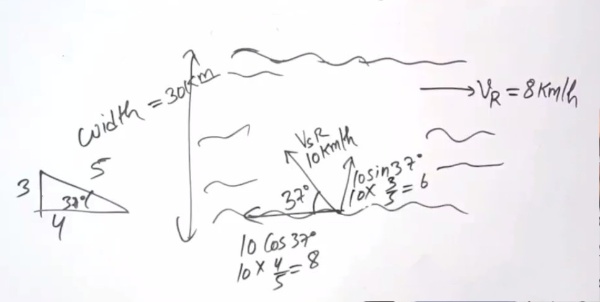 Width = 30km
V_R = 8 Km/h
V_SR
10 Km/h
37°
10 sin 37°
10 × 3/5 = 6
5
3
37°
4
10 Cos 37°
10 × 4/5 = 8